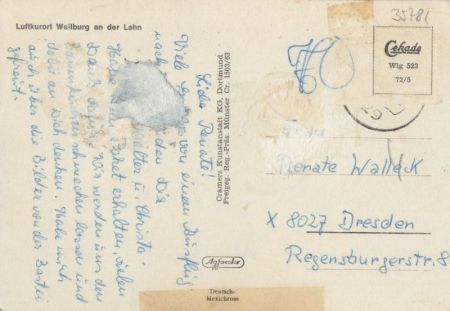 Luftkurort Weilburg an der Lahn
Liebe Renate!
Viele von einem Ausflug
nach den Dir
Walter u. Christa.
Paket erhalten, vielen
Dank dafür. Wir werden uns den
schmecken lassen und
dabei an Dich denken. Habe mich
auch über die Bilder von der Bastei
gefreut.
Cramers Kunstanstalt KG, Dortmund
Freigeg. Reg.-Präs. Münster Cr. 1502/63
35781
Cekade
Wlg 523
72/5
70
Renate Walleck
X 8027 Dresden
Regensburgerstr. 8
Agfacolor
Deutsch-
Mexichrom